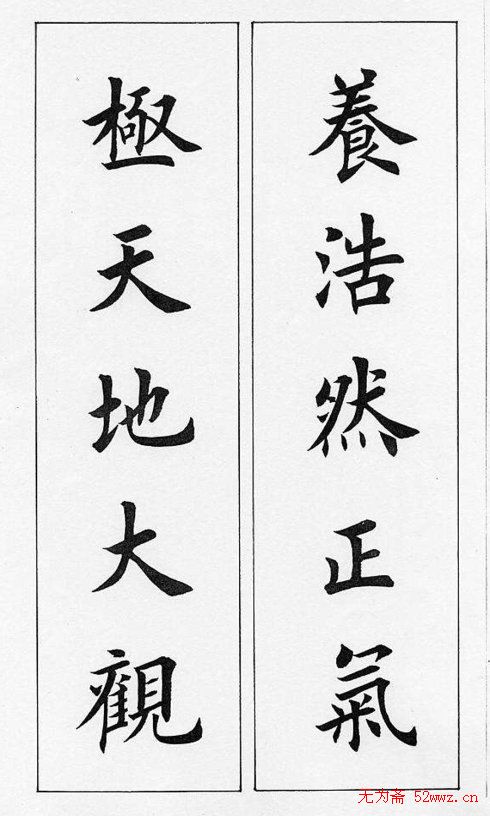 養浩然正氣
極天地大觀
无为斋 52wwz.cn